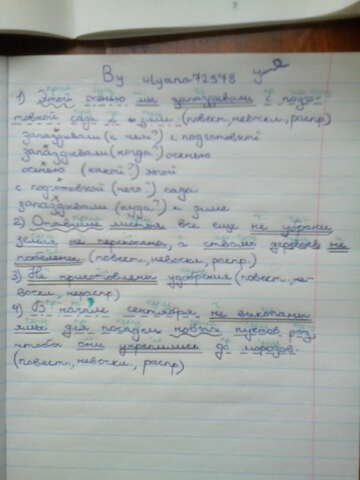 By ulyana72978
1) Этой осенью мы запаздываем с подго-
товкой сада к зиме (повест, невоскл, распр)
запаздываем (с чем?) с подготовкой
запаздываем (когда?) осенью
осенью (какой?) этой
с подготовкой (чего?) сада
запаздываем (куда?) к зиме
2) Опавшие листья все еще не убраны
земля не перекопана, а стволы деревьев не
побелены (повест, невоскл, распр.)
3) Не приготовлены удобрения (повест., не-
воскл, нераспр)
4) В начале сентября не выкопаны
ямы для посадки новых кустов роз,
чтобы они укрепились до морозов.
(повест., невоскл., распр)